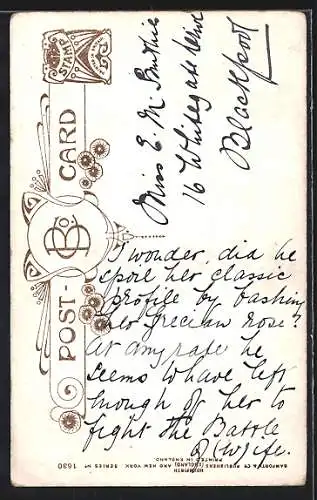 POST CARD
STAMP
B Co.
Miss E. M. Smithies
16 Whitegate Drive
Blackpool
I wonder, did he
spoil her classic
profile by bashing
her Grecian nose?
At any rate he
seems to have left
enough of her to
fight the Battle
of Life.
BAMFORTH & CO PUBLISHERS HOLMFIRTH (ENGLAND) AND NEW YORK SERIES No 1630
PRINTED IN ENGLAND.